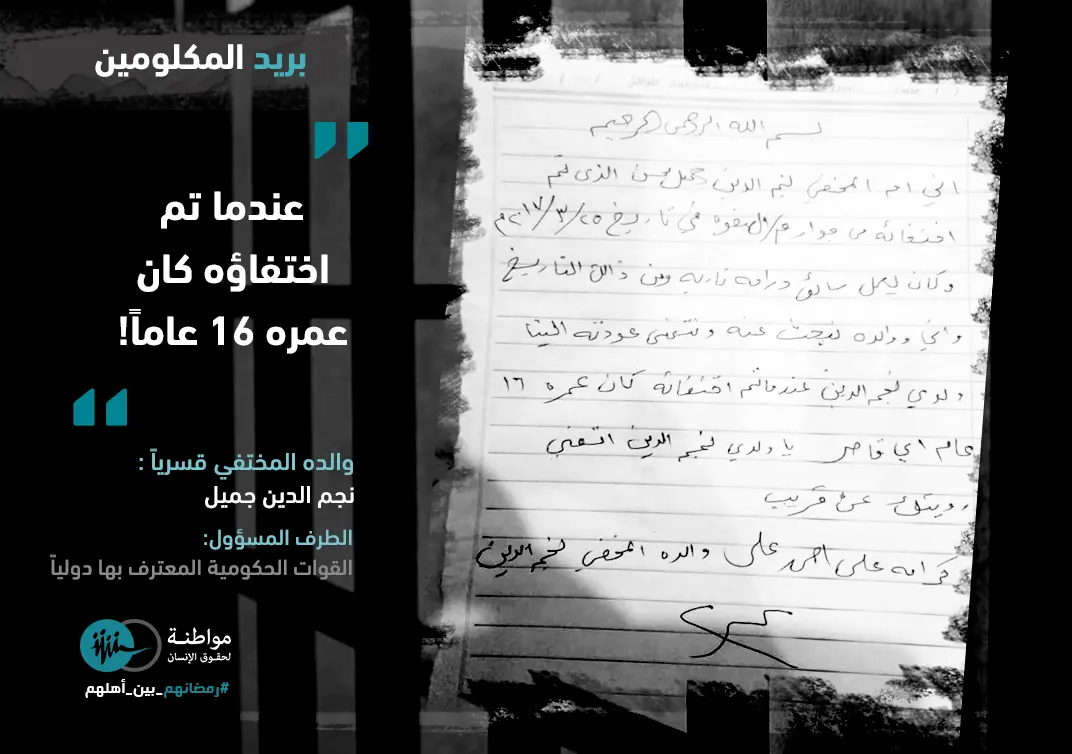 بريد المكلومين
"
عندما تم
اختفاؤه كان
عمره 16 عاماً!
"
والده المختفي قسرياً :
نجم الدين جميل
الطرف المسؤول:
القوات الحكومية المعترف بها دولياً
مواطنـة
لحقـوق الإنسان
#رمضانهم_بين_أهلهم
بسم الله الرحمن الرحيم
اني ام المخفي نجم الدين جميل حسن الذي تم
اختفائه من جوار م/الصفوه في تاريخ ٢٠١٧/٣/٢٥م
وكان يعمل سائق دراجه ناريه ومن ذالك التاريخ
واني ووالده نبحث عنه ونتمنى عودته الينا
ولدي نجم الدين عندما تم اختفائه كان عمره ١٦
عام اي قاصر يا ولدي نجم الدين اتمنى
رويتك عن قريب
كرامه علي احمد علي والده المخفي نجم الدين